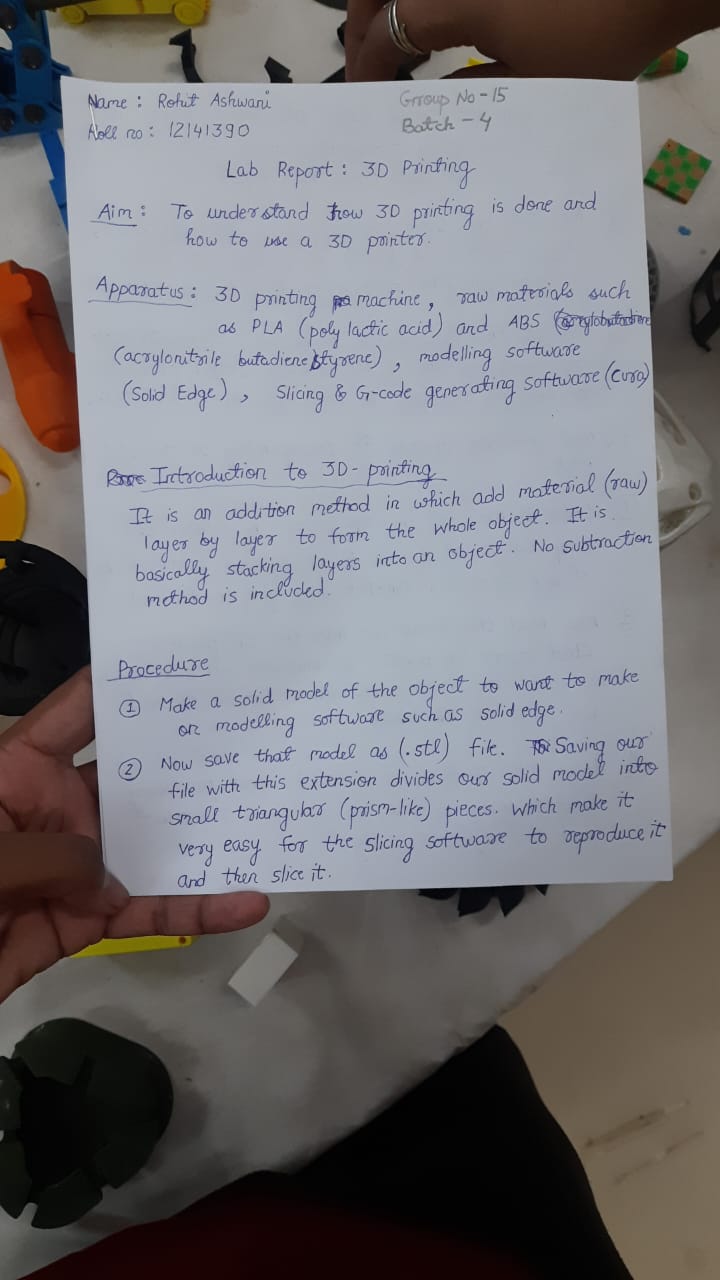 Name : Rohit Ashwani
Group No - 15
Roll no : 12141390
Batch - 4
Lab Report : 3D Printing
Aim : To understand how 3D printing is done and
how to use a 3D printer.
Apparatus : 3D printing machine, raw materials such
as PLA (poly lactic acid) and ABS
(acrylonitrile butadiene styrene), modelling software
(Solid Edge), Slicing & G-code generating software (Cura)
Introduction to 3D-printing
It is an addition method in which add material (raw)
layer by layer to form the whole object. It is
basically stacking layers into an object. No subtraction
method is included.
Procedure
① Make a solid model of the object to want to make
on modelling software such as solid edge.
② Now save that model as (.stl) file. Saving our
file with this extension divides our solid model into
small triangular (prism-like) pieces. which make it
very easy for the slicing software to reproduce it
and then slice it.